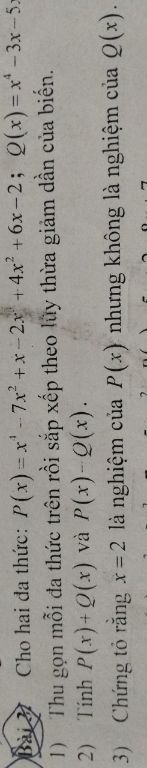 Bài 2: Cho hai đa thức: P(x) = x⁴ - 7x² + x - 2x³ + 4x² + 6x - 2 ; Q(x) = x⁴ - 3x - 5x
1) Thu gọn mỗi đa thức trên rồi sắp xếp theo lũy thừa giảm dần của biến.
2) Tính P(x) + Q(x) và P(x) - Q(x).
3) Chứng tỏ rằng x = 2 là nghiệm của P(x) nhưng không là nghiệm của Q(x).